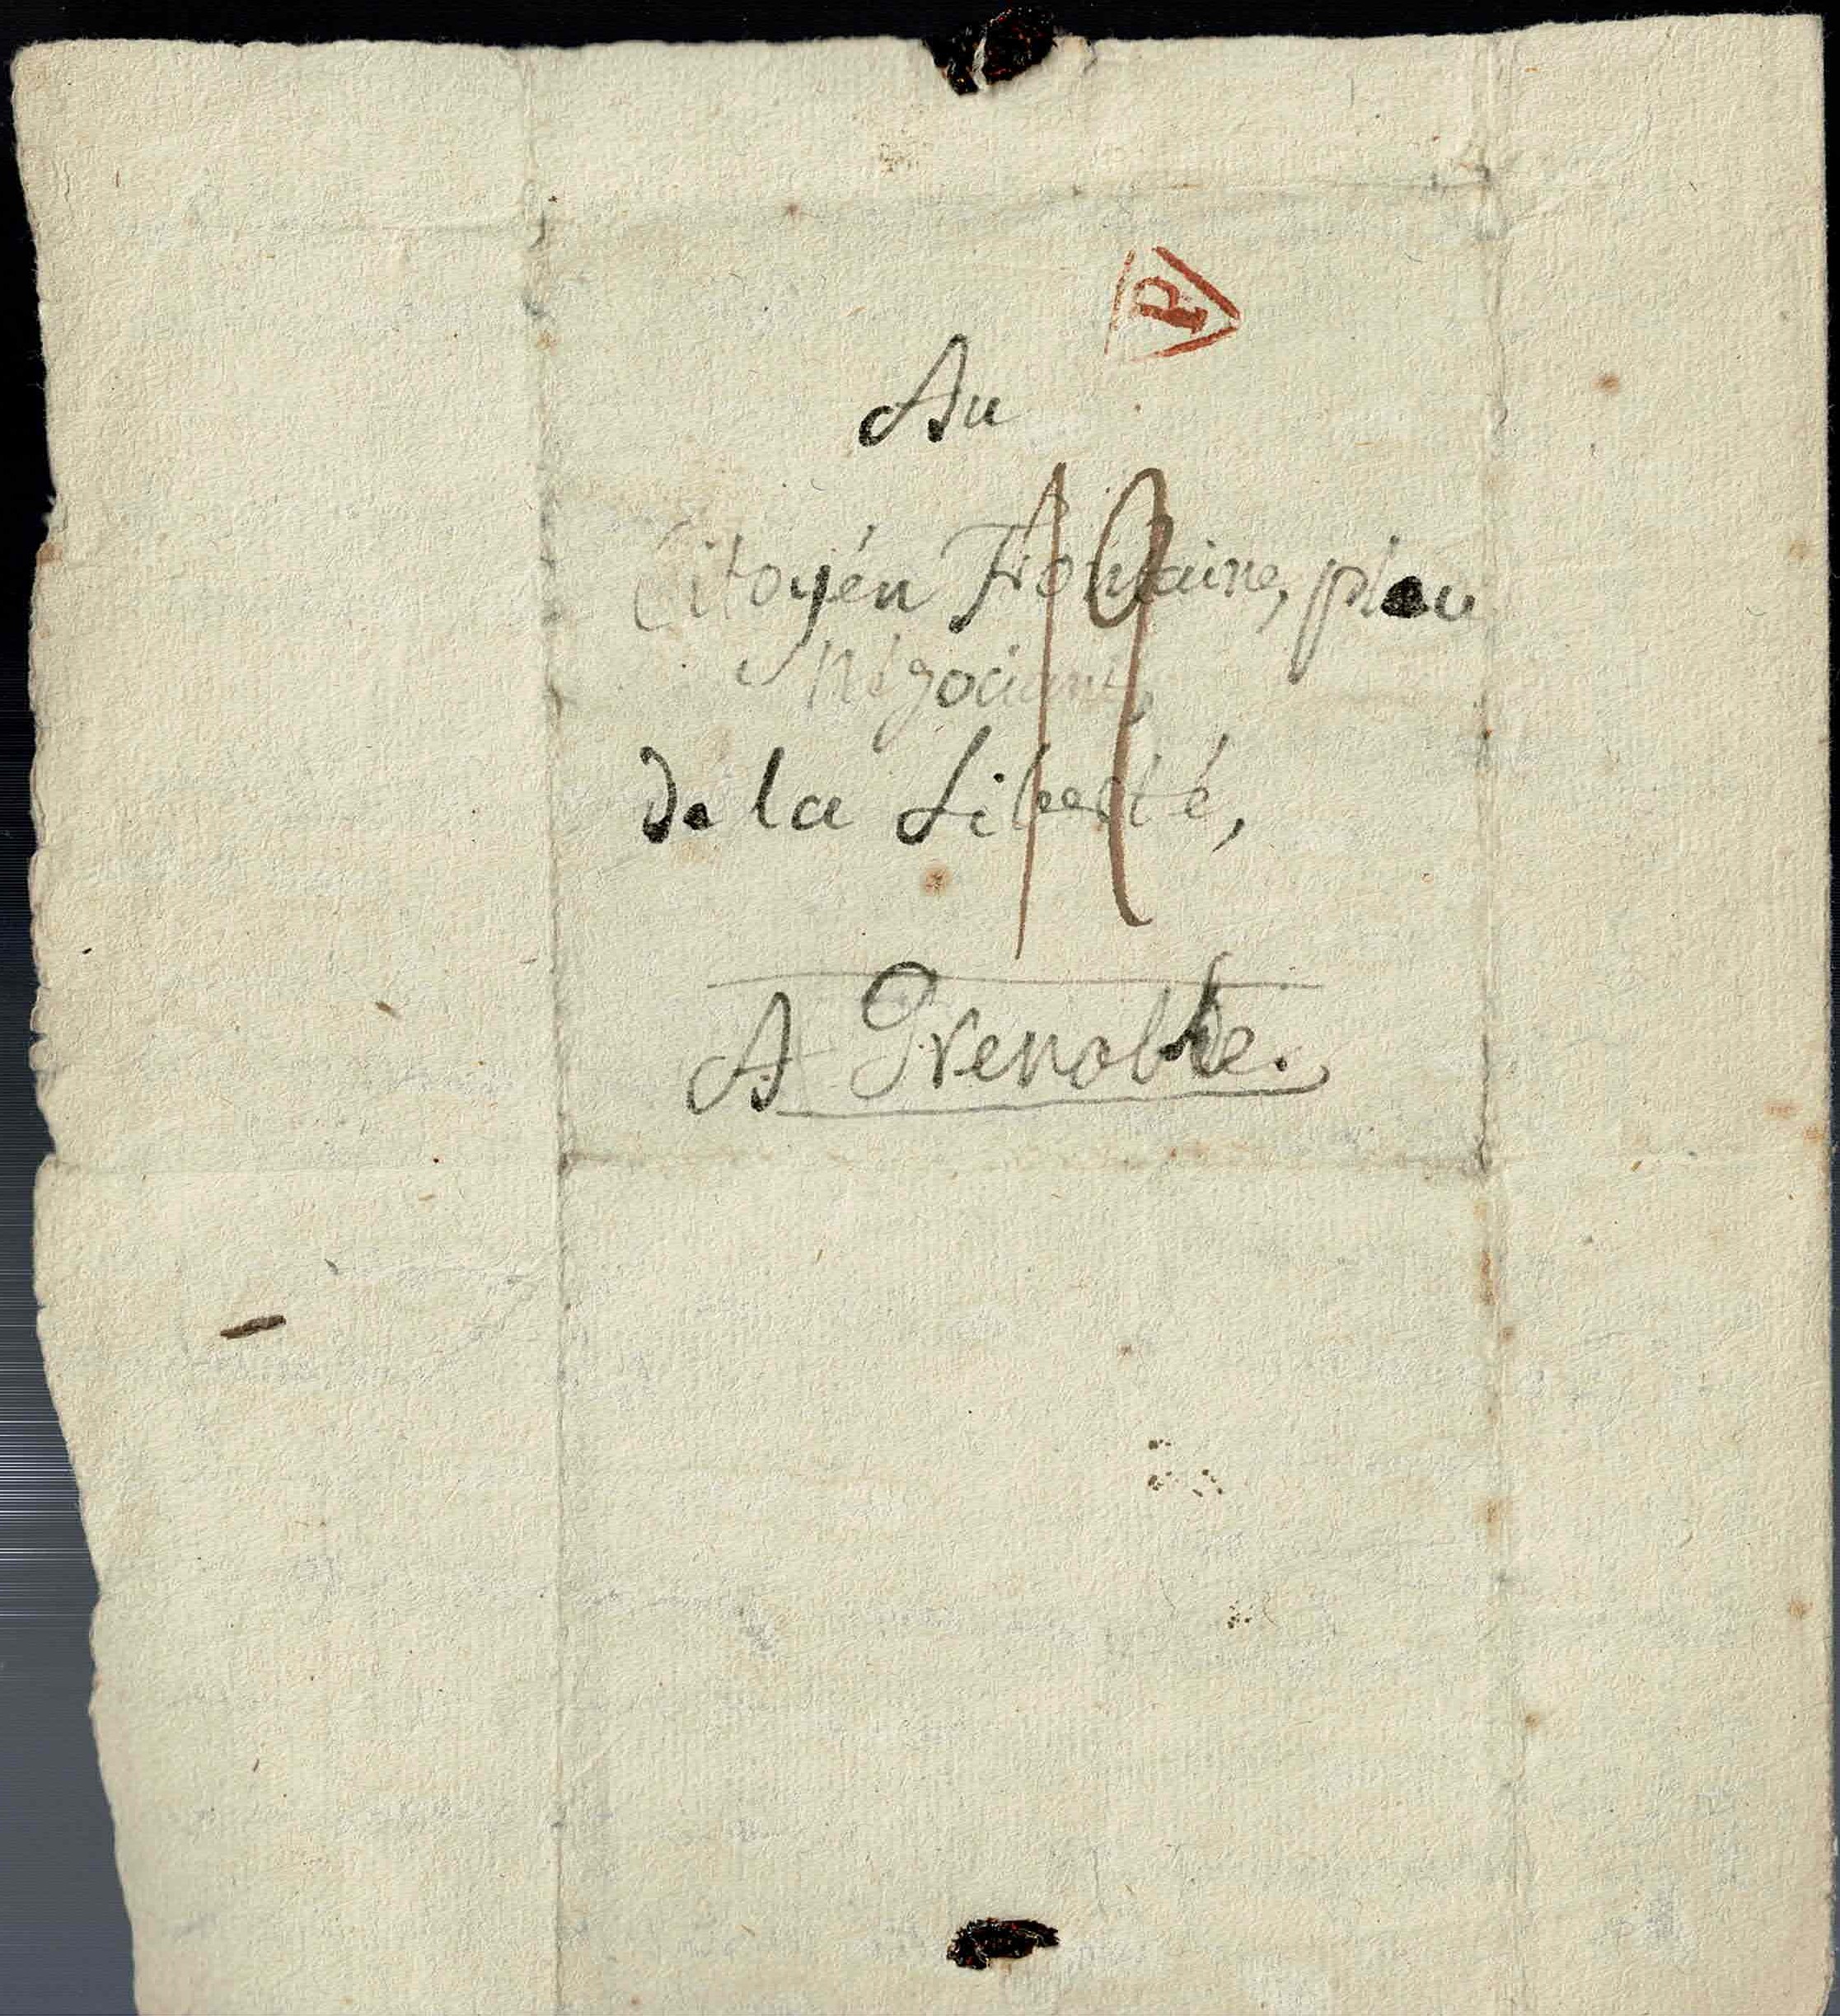 P
Au
Citoyén Fontaine, place
Négociant,
De la Liberté,
A Grenoble.